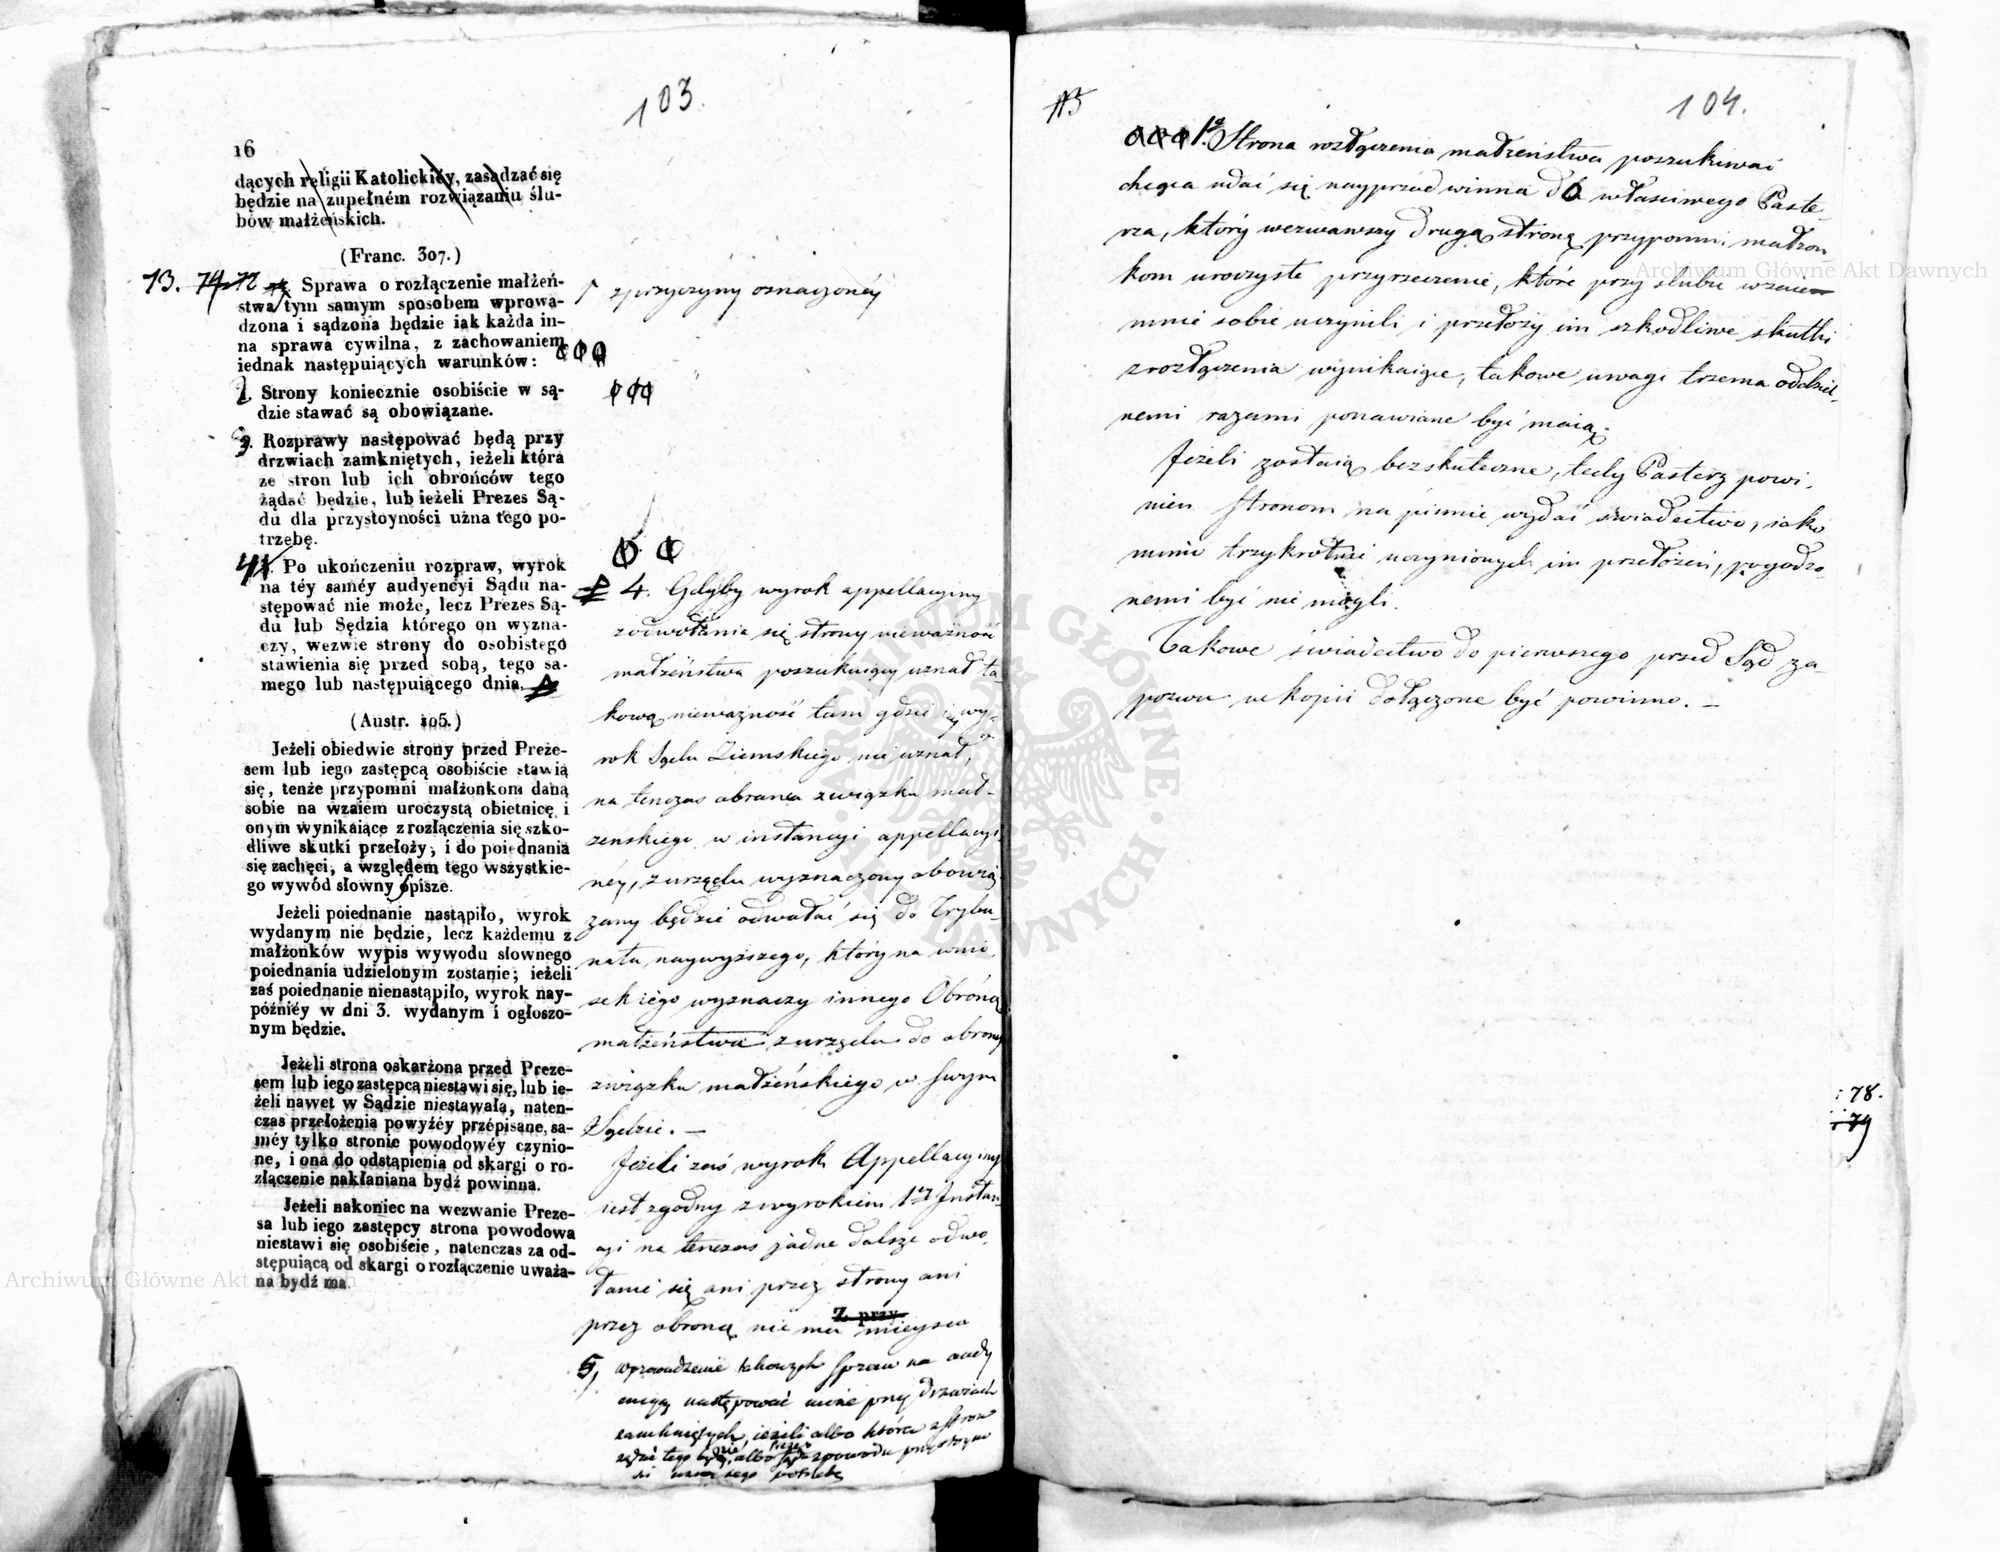 103.
16
dących religii Katolickiéy, zasądzać się
będzie na zupełném rozwiązaniu ślu-
bów małżeńskich.
(Franc. 307.)
73. 74 72 Sprawa o rozłączenie małżeń-
stwa tym samym sposobem wprowa-
dzona i sądzona będzie iak każda in-
na sprawa cywilna, z zachowaniem
iednak następuiących warunków:
2. Strony koniecznie osobiście w są-
dzie stawać są obowiązane.
3. Rozprawy następować będą przy
drzwiach zamkniętych, ieżeli która
ze stron lub ich obrońców tego
żądać będzie, lub ieżeli Prezes Są-
du dla przystoyności uzna tego po-
trzebę.
4. Po ukończeniu rozpraw, wyrok
na téy saméy audyencyi Sądu na-
stępować nie może, lecz Prezes Są-
du lub Sędzia którego on wyzna-
czy, wezwie strony do osobistego
stawienia się przed sobą, tego sa-
mego lub następuiącego dnia.
(Austr. 105.)
Jeżeli obiedwie strony przed Preze-
sem lub iego zastępcą osobiście stawią
się, tenże przypomni małżonkom daną
sobie na wzaiem uroczystą obietnicę i
onym wynikaiące z rozłączenia się szko-
dliwe skutki przełoży, i do poiednania
się zachęci, a względem tego wszystkie-
go wywód słowny spisze.
Jeżeli poiednanie nastąpiło, wyrok
wydanym nie będzie, lecz każdemu z
małżonków wypis wywodu słownego
poiednania udzielonym zostanie; ieżeli
zaś poiednanie nienastąpiło, wyrok nay-
późniéy w dni 3. wydanym i ogłoszo-
nym będzie.
Jeżeli strona oskarżona przed Preze-
sem lub iego zastępcą niestawi się, lub ie-
żeli nawet w Sądzie niestawała, naten-
czas przełożenia powyżéy przepisane, sa-
méy tylko stronie powodowéy czynio-
ne, i ona do odstąpienia od skargi o ro-
złączenie nakłaniana bydź powinna.
Jeżeli nakoniec na wezwanie Preze-
sa lub iego zastępcy strona powodowa
niestawi się osobiście, natenczas za od-
stępuiącą od skargi o rozłączenie uważa-
na bydź ma.
Z przy-
z przyczyny oznaczonéy
4. Gdyby wyrok appellacyiny
z odwołania się strony nieważność
małżeństwa poszukuiącey uznał ta-
kową nieważność tam gdzie iéy wy-
rok Sądu Ziemskiego nie uznał,
na tenczas obrońca związku mał-
żeńskiego w instancyi appellacyi-
néy, z urzędu wyznaczony obowią-
zany będzie odwołać się do Trybu-
nału naywyższego, który na wnio-
sek iego wyznaczy innego Obrońcę
małżeństwa z urzędu do obrony
związku małżeńskiego w swym
Sądzie. —
Jeżeli zaś wyrok Appellacyiny
iest zgodny z wyrokiem 1éy Instan-
cyi na tenczas żadne dalsze odwo-
łanie się ani przez strony ani
przez obrońcę nie ma mieysca
5, wprowadzenie takowych spraw na audy-
encyą następować winno przy drzwiach
zamkniętych, ieżeli albo która z stron
żądać tego będzie, albo Prezes Sądu z powodu przystoyno-
ści uzna tego potrzebę
104.
1º. Strona rozłączenia małżeństwa poszukiwać
chcąca udać się nayprzód winna do właściwego Paste-
rza, który wezwawszy drugą stronę przypomni małżon-
kom uroczyste przyrzeczenie, które przy ślubie wzaie-
mnie sobie uczynili i przełoży im szkodliwe skutki
z rozłączenia wynikaiące, takowe uwagi trzema oddziel-
nemi razami ponawiane być maią.
Jeżeli zostaią bezskuteczne, tedy Pasterz powi-
nien stronom na piśmie wydać świadectwo, iako
mimo trzykrotnie uczynionych im przełożeń, pogodzo-
nemi być nie mogli.
Takowe świadectwo do pierwszego przed Sąd za-
pozwu w kopii dołączone być powinno. —
78.
79
Archiwum Główne Akt Dawnych
Archiwum Główne Akt Dawnych
ARCHIWUM GŁÓWNE AKT DAWNYCH